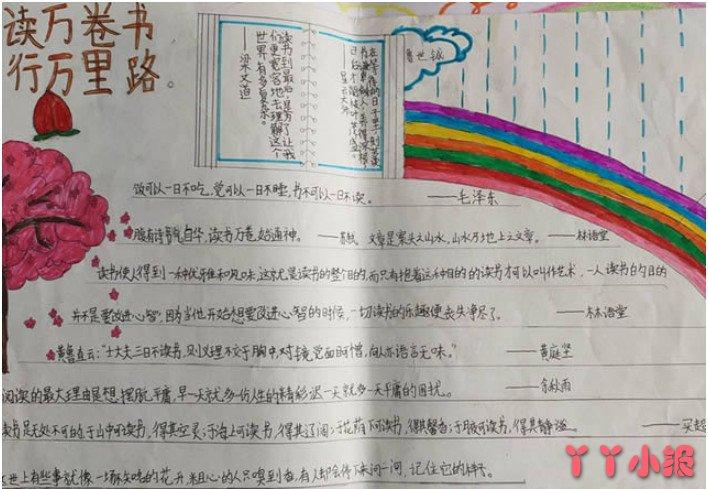 读万卷书
行万里路。
读书到最后,是为了让我
们更宽容地去理解这个
世界有多复杂。
——梁文道
曹世钺
饭可以一日不吃,觉可以一日不睡,书不可以一日不读。 ——毛泽东
腹有诗书气自华,读书万卷始通神。 ——苏轼 文章是案头之山水,山水乃地上之文章。 ——林语堂
读书使人得到一种优雅和风味,这就是读书的整个目的,而只有抱着这种目的的读书才可以叫作艺术,一人读书的目的
并不是要改进心智,因为当他开始想要改进心智的时候,一切读书的乐趣便丧失净尽了。 ——林语堂
黄鲁直云:“士大夫三日不读书,则义理不交于胸中,对镜觉面目可憎,向人亦语言无味。” ——黄庭坚
阅读的最大理由是想摆脱平庸,早一天就多一份人生的精彩,迟一天就多一天平庸的困扰。 ——余秋雨
读书是无处不可的,于山中可读书,得其空灵;于海上可读书,得其辽阔;于花荫下可读书,得其馨香;于月夜可读书,得其静谧。
世上有些事就像一场夜晚的花开,粗心的人只嗅到香,有人却会停下来问一问,记住它的
丫丫小报